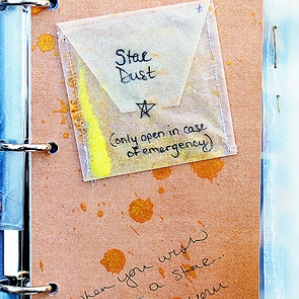 Star
Dust
(only open in case
of emergency)
when you wish
a star...